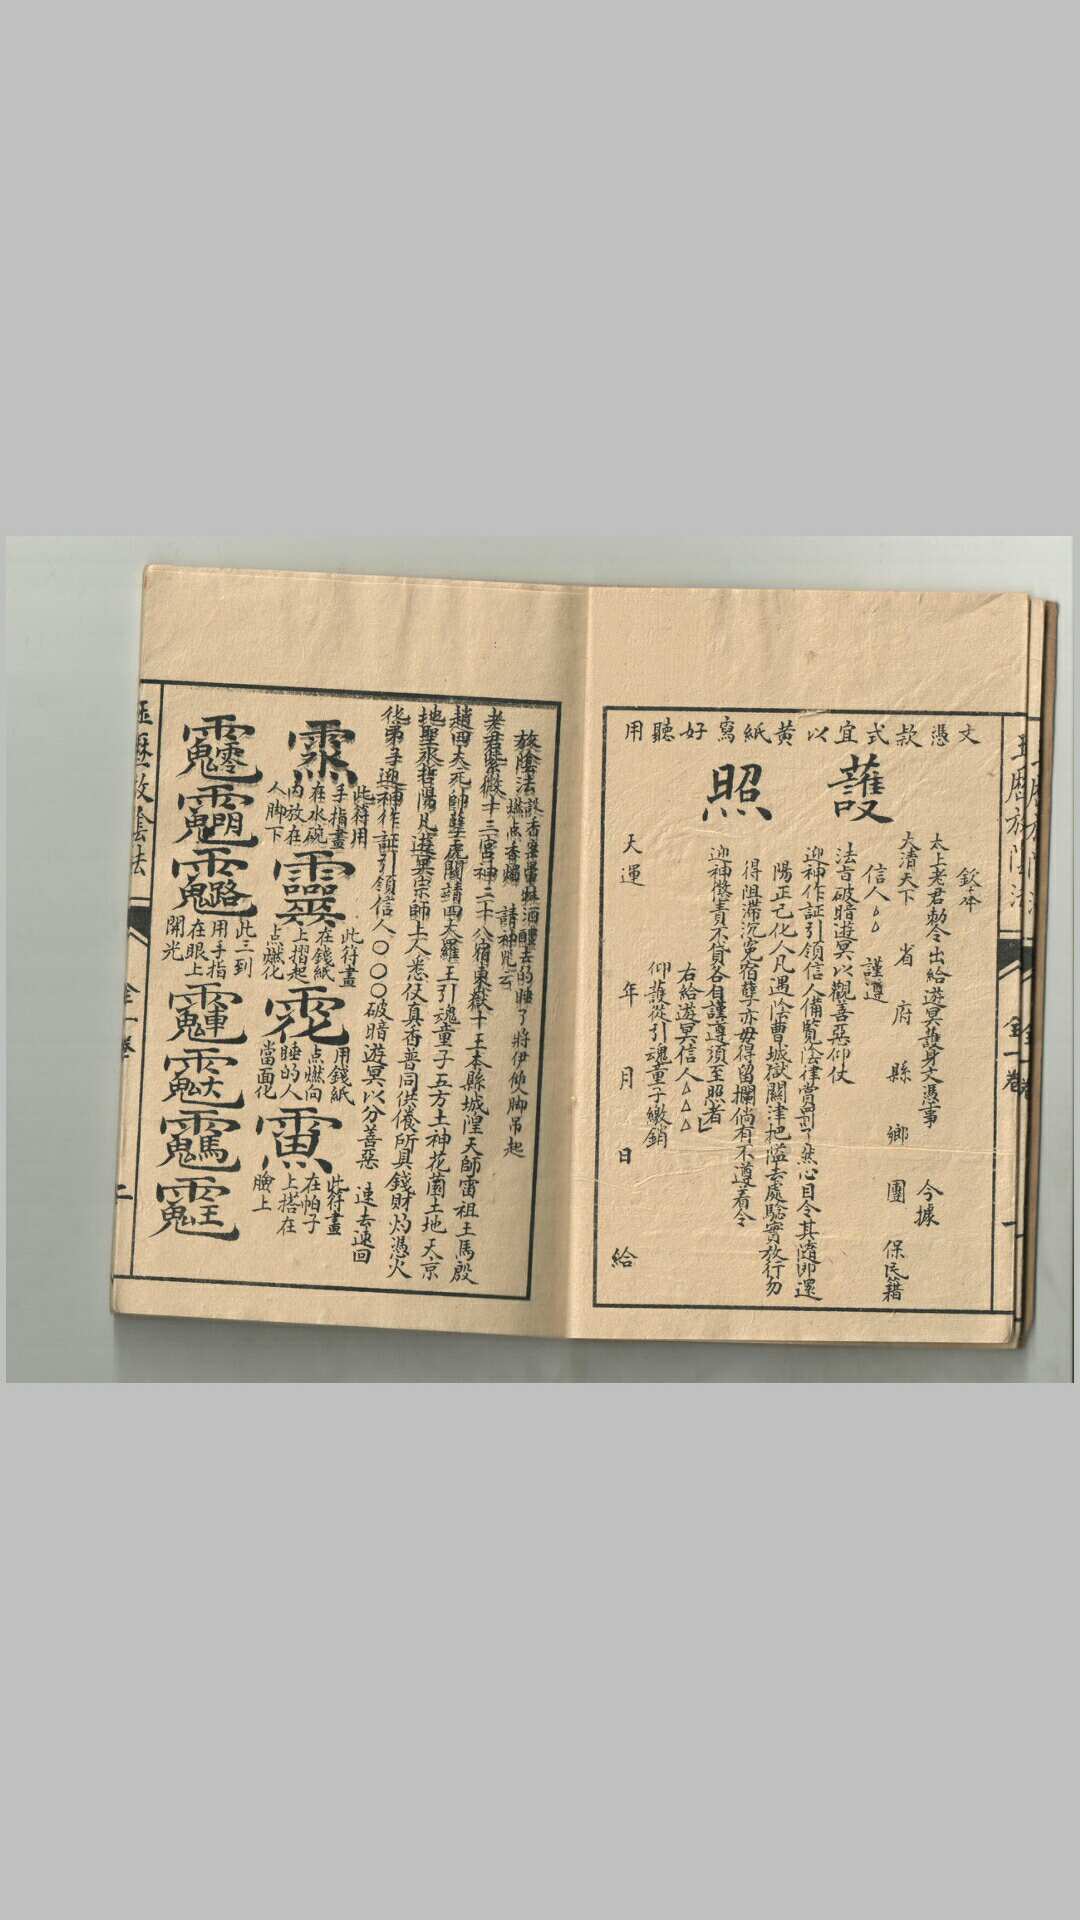 文憑款式宜以黄紙寫好聽用
護照
欽奉
太上老君勅令出給遊冥護身文憑事　今據
大清天下　省　府　縣　鄉　團　保民籍
信人△△　謹遵
法旨破暗遊冥以觀善惡仰仗
迎神作証引領信人備覧陰律賞罰了然心目令其隨即還
陽正己化人凡遇陰曹城獄關津把隘去處騐實放行勿
得阻滯沉寃宿孽亦毋得留攔倘有不遵着令
迎神懲責不貸各自謹遵須至照者
右給遊冥信人△△△
仰護從引魂童子繳銷
天運　年　月　日　給
全一卷
放陰法設香案當麻酒醴去的睡了將伊雙脚吊起
燃点香燭　請神咒云
老君紫微十三宮神二十八宿東嶽十王本縣城隍天師雷祖王馬殷
趙四大元帥 四大羅王引魂童子五方土神花園土地天京
地聖衆哲陽凡遊冥宗師上人悉仗真香普同供養所具錢財灼憑火
化弟子迎神作証引領信人〇〇〇破暗遊冥以分善惡　速去速回
此符用
手指畫
在水碗
内放在
人脚下
此符畫
在錢紙
上摺起
点燃化
用錢紙
点燃向
睡的人
當面化
此符畫
在帕子
上搭在
臉上
此三到
用手指
在眼上
開光
全一卷
二